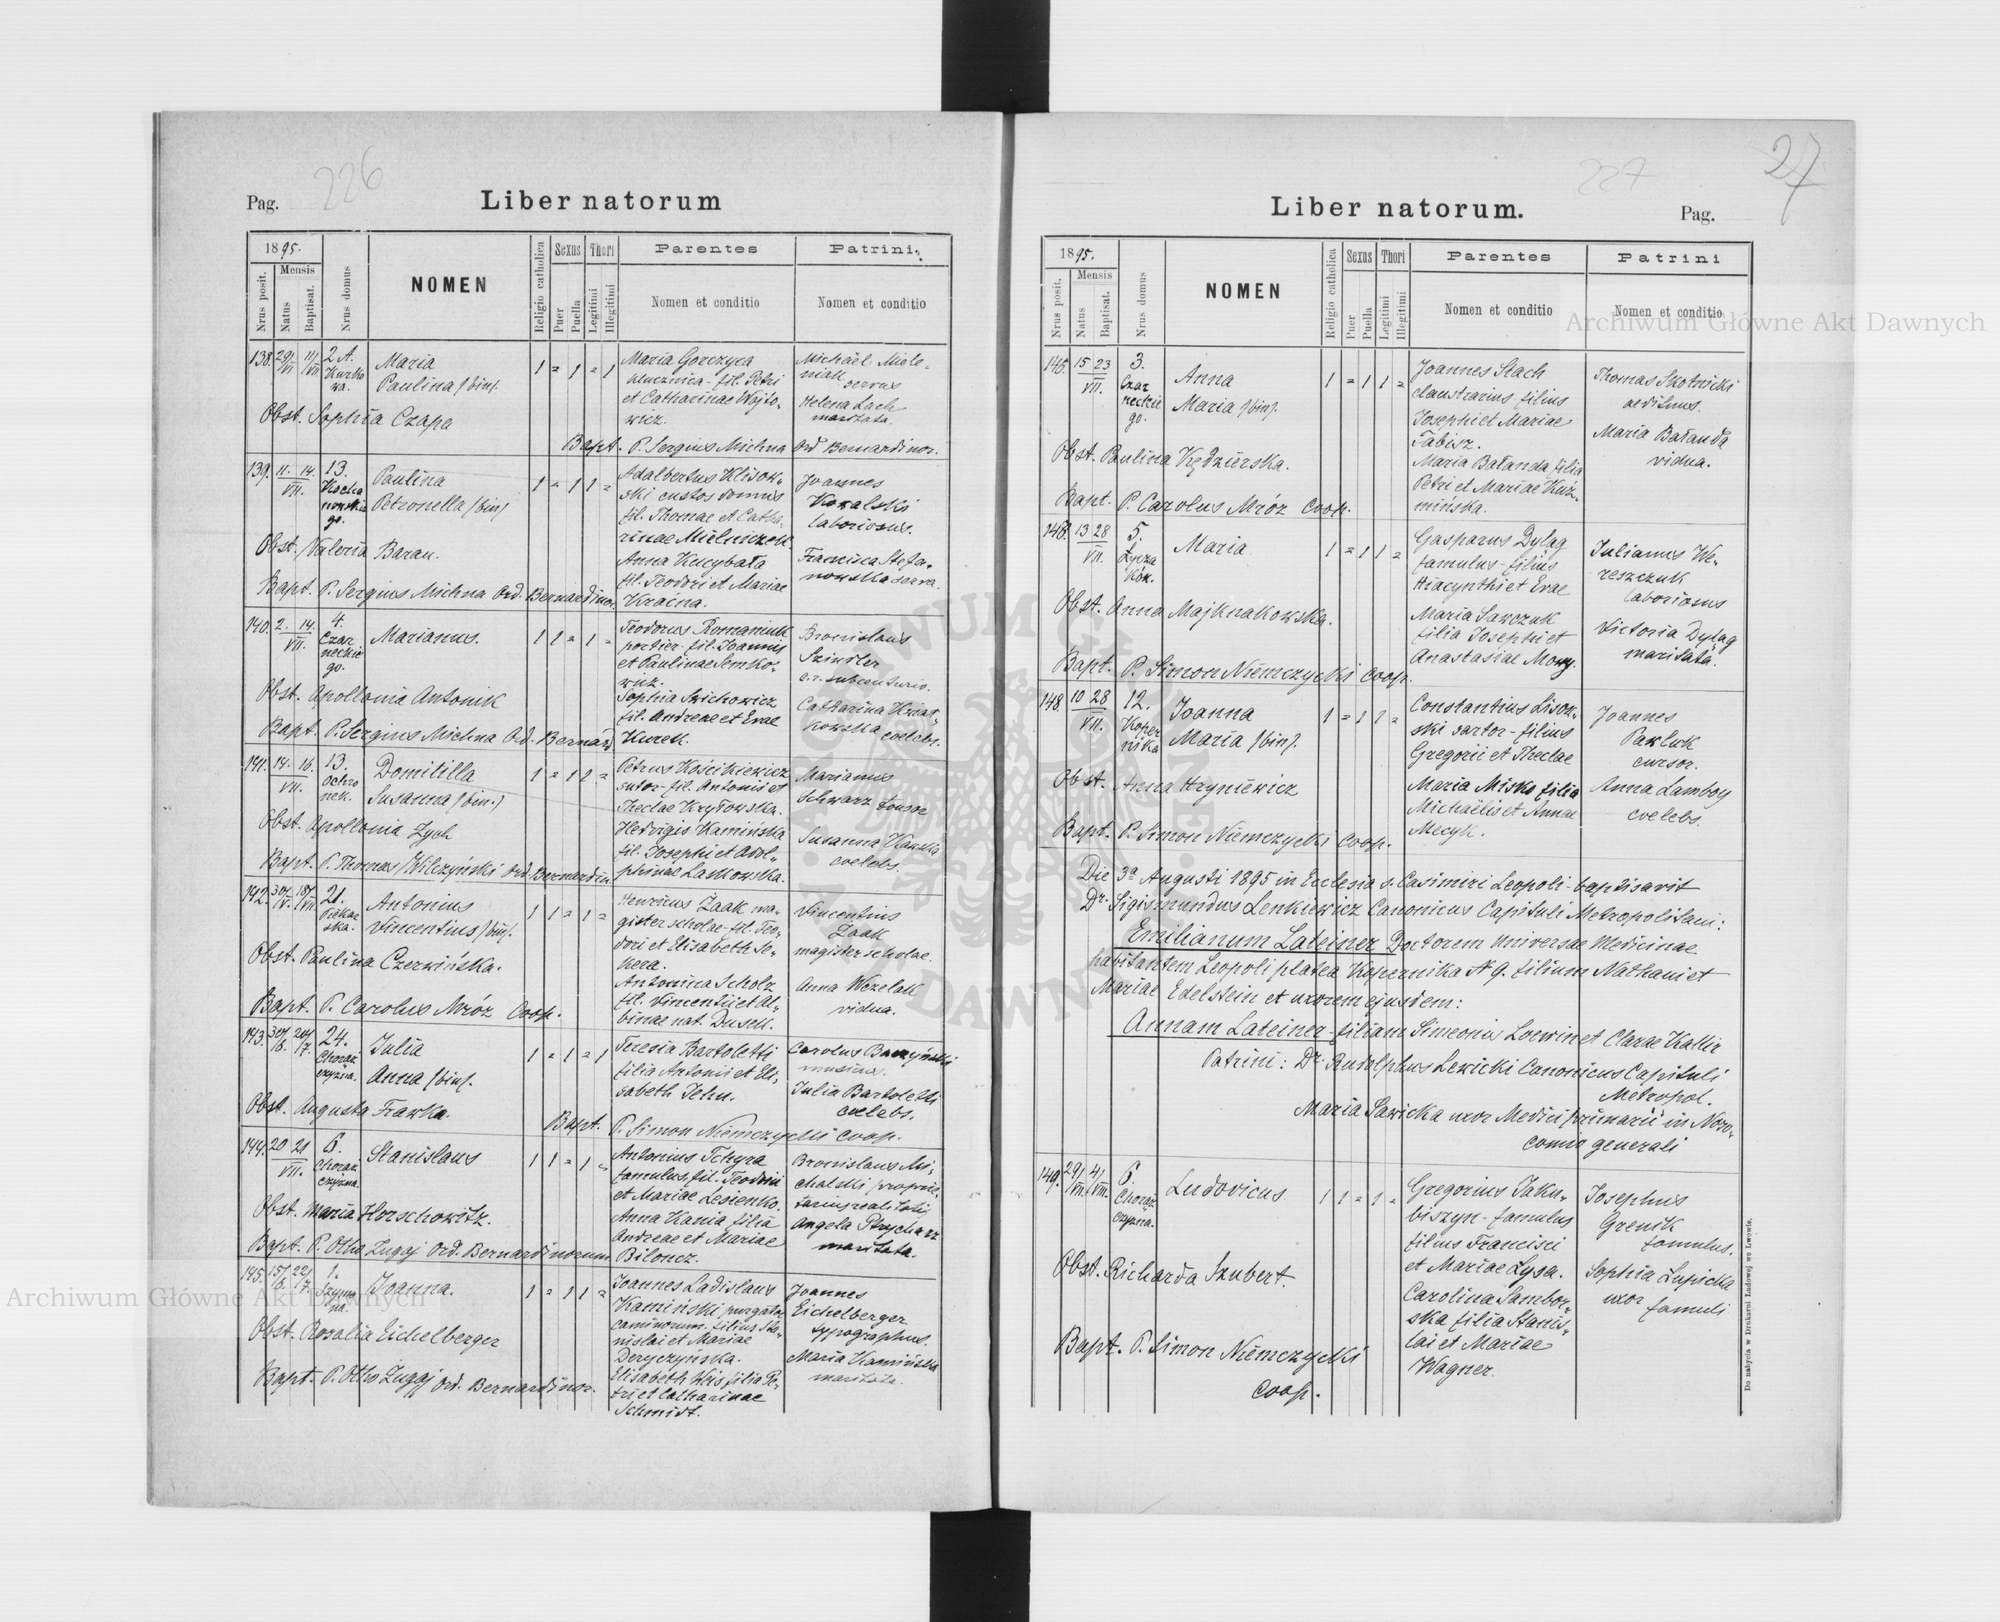 226
Pag.
Liber natorum
1895.
Mensis
Nrus posit.
Natus
Baptisat.
Nrus domus
NOMEN
Religio catholica
Sexus
Puer
Puella
Thori
Legitimi
Illegitimi
Parentes
Nomen et conditio
Patrini
Nomen et conditio
138. 29/VI 11/VII 2 A. Kurko
wa.
Maria
Paulina /bin/.
1 = 1 = 1
Maria Gorczyca
klucznica - fil. Petri
et Catharinae Wojto-
wicz.
Michaël Miele-
niak servus
Helena Lach
maritata.
Obst. Sophia Czapa
Bapt. P. Sergius Michna Ord Bernardinor.
139. 11. 14. VII. 13.
Kocha
nowskie
go.
Paulina
Petronella /bin/
1 = 1 1 =
Adalbertus Klisow-
ski custos domus
fil. Thomae et Catha-
rinae Mielniczek.
Anna Kucybała
fil. Teodori et Mariae
Kraina.
Joannes
Kowalski
laboriosus.
Francisca Stefa-
nowska serva.
Obst. Valeria Baran.
Bapt. P. Sergius Michna Ord. Bernardinor.
140. 2. 14. VII. 4.
Czar
neckie
go.
Marianus.
1 1 = 1 =
Teodorus Romaniuk
portier - fil. Joannis
et Paulinae Semko-
wicz.
Sophia Swichowicz
fil. Andreae et Evae
Kurek.
Bronislaus
Szindler
Catharina Kwiat-
kowska coelebs.
Obst. Apollonia Antonik
Bapt. P. Sergius Michna Ord. Bernard
141. 14. 16. VII. 13.
Ochro
nek.
Domitilla
Susanna /bin./
1 = 1 1 =
Petrus Kościkiewicz
sutor - fil. Antonii et
Theclae Kryłowska.
Hedvigis Kamińska
fil. Josephi et Adol-
phinae Laskowska.
Marianus
Schwarz tonsor
Susanna
coelebs.
Obst. Apollonia Zych
Bapt. P. Thomas Wilczyński Ord. Bernardin.
142. 30/V. 18/VII 21.
Piekar
ska.
Antonius
Vincentius /bin/.
1 1 = 1 =
Henricus Żaak ma-
gister scholae - fil. Teo-
dori et Elisabeth Se-
kera.
Antonina Scholz
fil. Vincentii et Al-
binae nat. Dusek.
Vincentius
Żaak
magister scholae.
Anna Wezelak
vidua.
Obst. Paulina Czerwińska.
Bapt. P. Carolus Mróz Coop.
143. 30/6. 20/7. 24.
Chorąż
czyzna.
Julia
Anna /bin/.
1 = 1 = 1
Teresia Bartoletti
filia Antonii et Eli-
sabeth Jehn.
Carolus
musicus.
Julia Bartoletti
coelebs.
Obst. Augusta Frawka.
Bapt. P. Simon Niemczycki coop.
144. 20 21 VII. 6.
Chorąż
czyzna.
Stanislaus
1 1 = 1 =
Antonius Tchyra
famulus, fil. Teodori
et Mariae Lesienko.
Anna Kania filia
Andreae et Mariae
Biloncz.
Bronislaus Mi-
chalski proprie-
tarius realitatis
Angela Ptycharz
maritata.
Obst. Maria Horschowitz.
Bapt. P. Otho Zugaj Ord. Bernardinorum
145. 15/6. 22/7. 1.
Szymo
na.
Joanna.
1 = 1 1 =
Joannes Ladislaus
Kamiński purgator
caminorum. filius Sta-
nislai et Mariae
Deryczyńska.
Elisabeth Weis filia Pe-
tri et Catharinae
Schmidt.
Joannes
Eichelberger
typographus.
Maria Kamińska
maritata.
Obst. Rosalia Eichelberger
Bapt. P. Otho Zugaj Ord. Bernardinor.
227
27
Liber natorum.
Pag.
1895.
Mensis
Nrus posit.
Natus
Baptisat.
Nrus domus
NOMEN
Religio catholica
Sexus
Puer
Puella
Thori
Legitimi
Illegitimi
Parentes
Nomen et conditio
Patrini
Nomen et conditio
15 23 VII. 3.
Czar
neckie
go.
Anna
Maria /bin/.
1 = 1 1 =
Joannes Stach
claustrarius filius
Josephi et Mariae
Tabisz.
Maria Bałanda filia
Petri et Mariae Kuź-
mińska.
Thomas Skotnicki
aedituus.
Maria Bałanda
vidua.
Obst. Paulina Kędzierska.
Bapt. P. Carolus Mróz Coop.
13 28 VII. 5.
Łycza
ków.
Maria
1 = 1 1 =
Gasparus Dyląg
famulus - filius
Hiacynthi et Evae
Maria Sawczuk
filia Josephi et
Anastasiae
Julianus We-
reszczuk
laboriosus
Victoria Dyląg
maritata.
Obst. Anna Majknakowska.
Bapt. P. Simon Niemczycki coop.
148. 10 28 VII. 12.
Koper
nika
Joanna
Maria /bin/.
1 = 1 1 =
Constantius Lisow-
ski sartor - filius
Gregorii et Theclae
Maria Misko filia
Michaëlis et Annae
Mecyk.
Joannes
Pawluk
cursor.
Anna Lamboy
coelebs.
Obst. Anna Hryniewicz
Bapt. P. Simon Niemczycki Coop.
Die 3ª Augusti 1895 in Ecclesia s. Casimiri Leopoli baptisavit
Dr. Sigismundus Lenkiewicz Canonicus Capituli Metropolitani:
Emilianum Lateiner Doctorem Universae Medicinae
habitantem Leopoli platea Kopernika N 9. filium Nathani et
Mariae Edelstein et uxorem ejusdem:
Annam Lateiner - filiam Simeonis Loewin et Clarae Kallir
Patrini: Dr. Rudolphus Lewicki Canonicus Capituli
Metropol.
Maria Sawicka uxor Medici primarii in Noso-
comio generali
149. 29/VII. 4/VIII. 6.
Chorąż
czyzna.
Ludovicus
1 1 = 1 =
Gregorius Jaku-
biszyn - famulus
filius Francisci
et Mariae Lysa.
Carolina Sambor-
ska filia Stanis-
lai et Mariae
Wagner.
Josephus
Grenik
famulus.
Sophia Lupicka
uxor famuli
Obst. Richarda Szubert.
Bapt. P. Simon Niemczycki
Coop.
Do nabycia w Drukarni Ludowej we Lwowie.
Archiwum Główne Akt Dawnych
Archiwum Główne Akt Dawnych